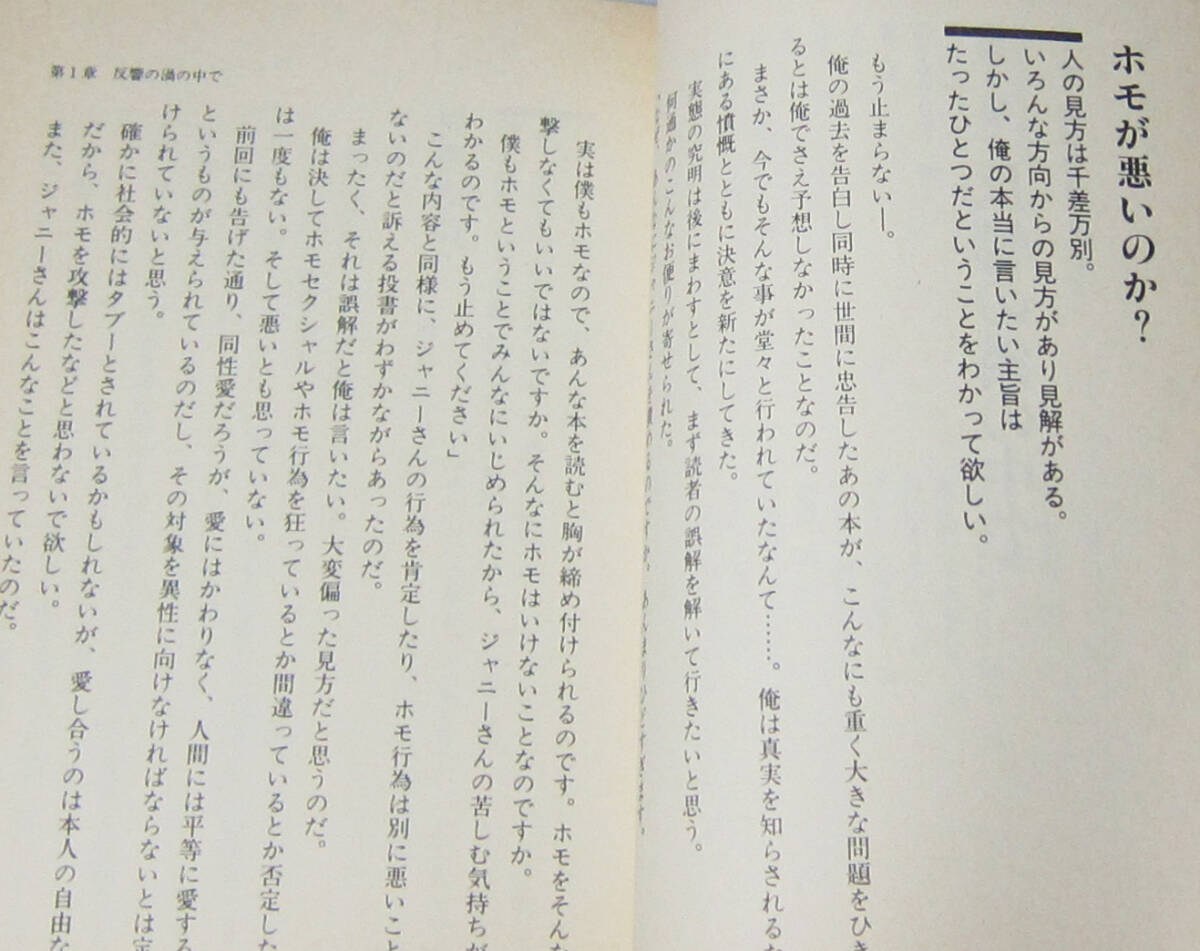 ホモが悪いのか？
人の見方は千差万別。
いろんな方向からの見方があり見解がある。
しかし、俺の本当に言いたい主旨は
たったひとつだということをわかって欲しい。
もう止まらない―。
俺の過去を告白し同時に世間に忠告したあの本が、こんなにも重く大きな問題をひき
るとは俺でさえ予想しなかったことなのだ。
まさか、今でもそんな事が堂々と行われていたなんて……。俺は真実を知らされるた
にある憤慨とともに決意を新たにしてきた。
実態の究明は後にまわすとして、まず読者の誤解を解いて行きたいと思う。
何通かのこんなお便りが寄せられた。
第1章　反響の渦の中で
実は僕もホモなので、あんな本を読むと胸が締め付けられるのです。ホモをそんな
撃しなくてもいいではないですか。そんなにホモはいけないことなのですか。
僕もホモということでみんなにいじめられたから、ジャニーさんの苦しむ気持ちが
わかるのです。もう止めてください」
こんな内容と同様に、ジャニーさんの行為を肯定したり、ホモ行為は別に悪いこと
ないのだと訴える投書がわずかながらあったのだ。
まったく、それは誤解だと俺は言いたい。大変偏った見方だと思うのだ。
俺は決してホモセクシャルやホモ行為を狂っているとか間違っているとか否定した
は一度もない。そして悪いとも思っていない。
前回にも告げた通り、同性愛だろうが、愛にはかわりなく、人間には平等に愛する
というものが与えられているのだし、その対象を異性に向けなければならないとは定
けられていないと思う。
確かに社会的にはタブーとされているかもしれないが、愛し合うのは本人の自由な
だから、ホモを攻撃したなどと思わないで欲しい。
また、ジャニーさんはこんなことを言っていたのだ。